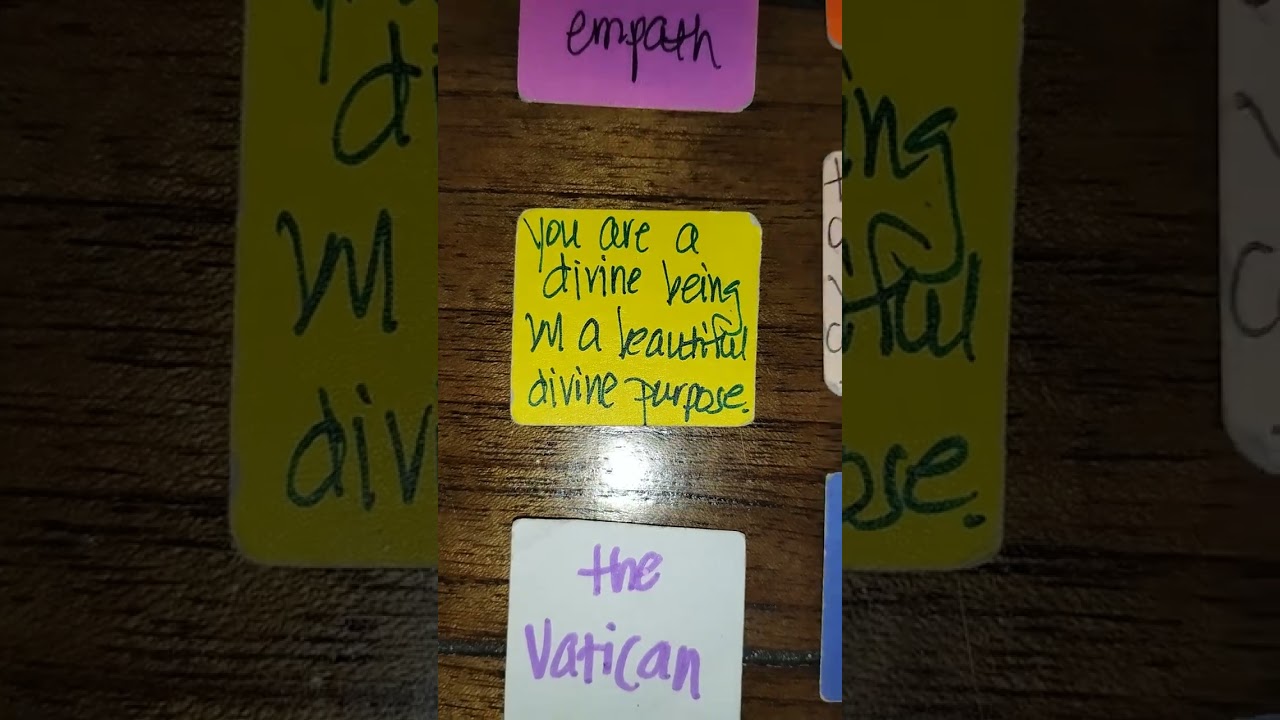 empath
you are a
divine being
in a beautiful
divine purpose.
the
Vatican